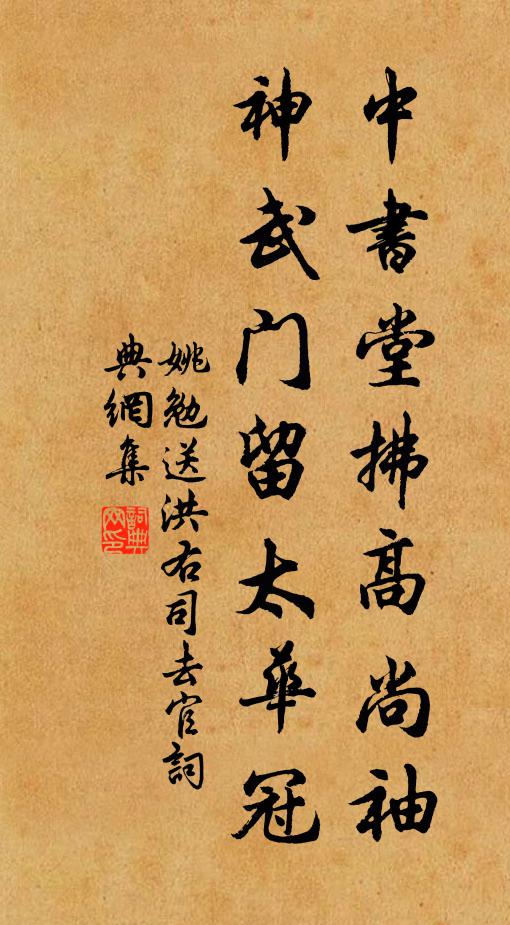 中書堂拂高尚袖
神武门留太華冠
姚勉送洪右司去官詞
典網集
詞典
网印